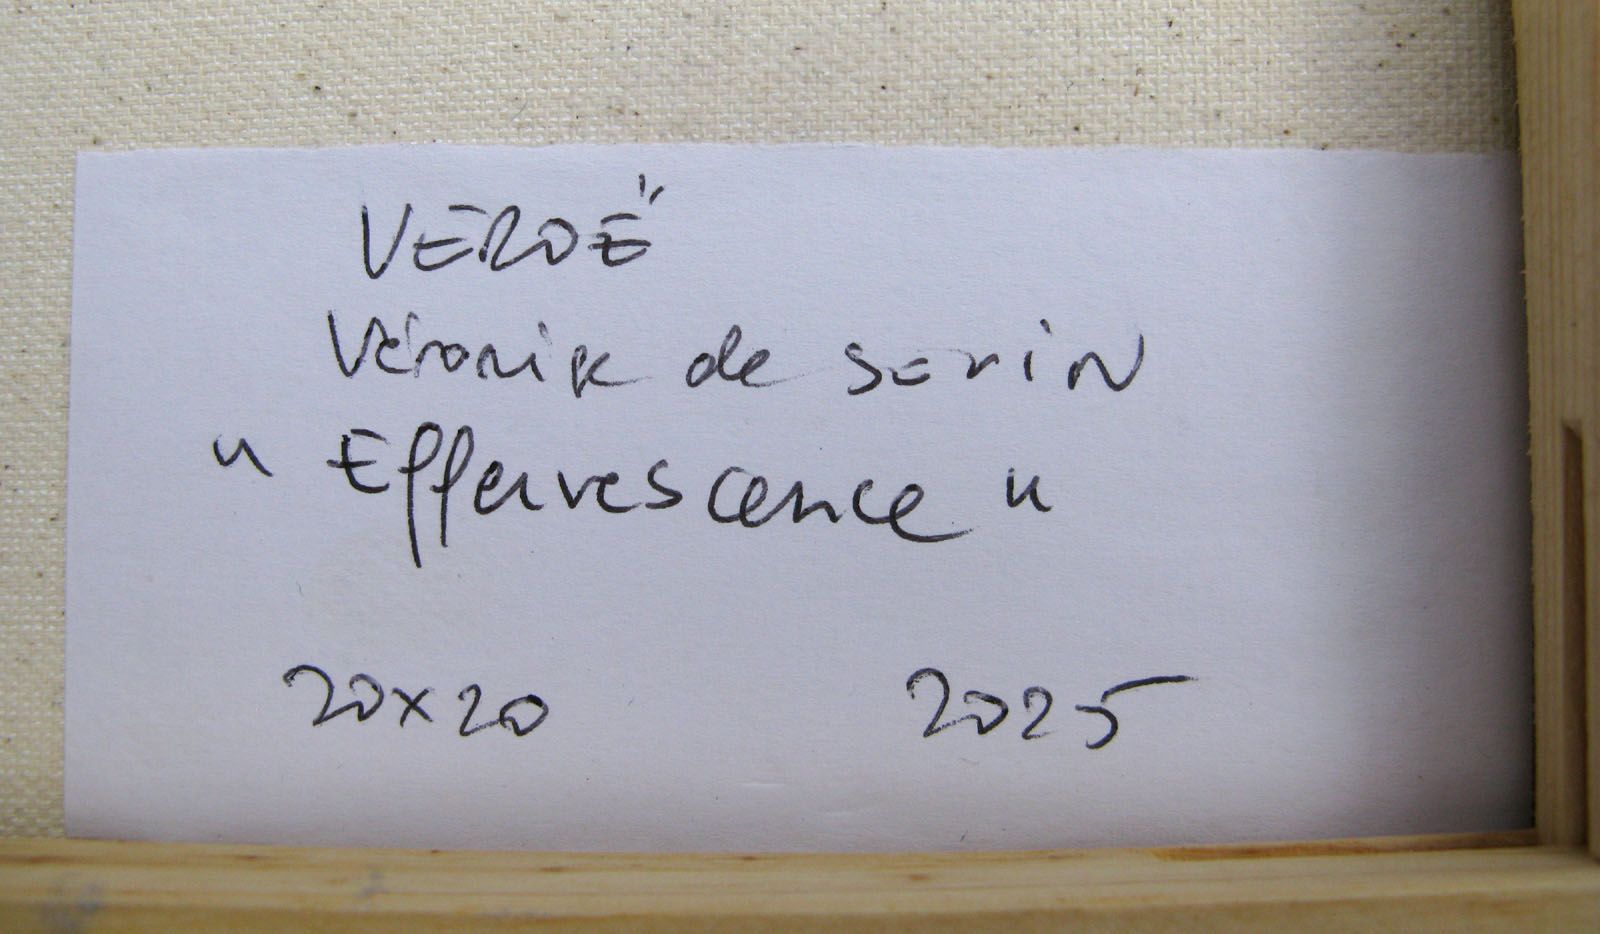 VERDË
Véronik de serin
"Effervescence"
20x20 2025